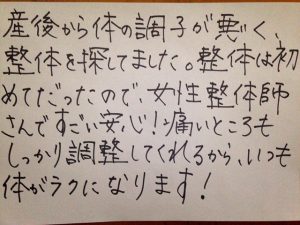 産後から体の調子が悪く、
整体を探してました。整体は初
めてだったので、女性整体師
さんですごい安心!痛いところも
しっかり調整してくれるから、いつも
体がラクになります!